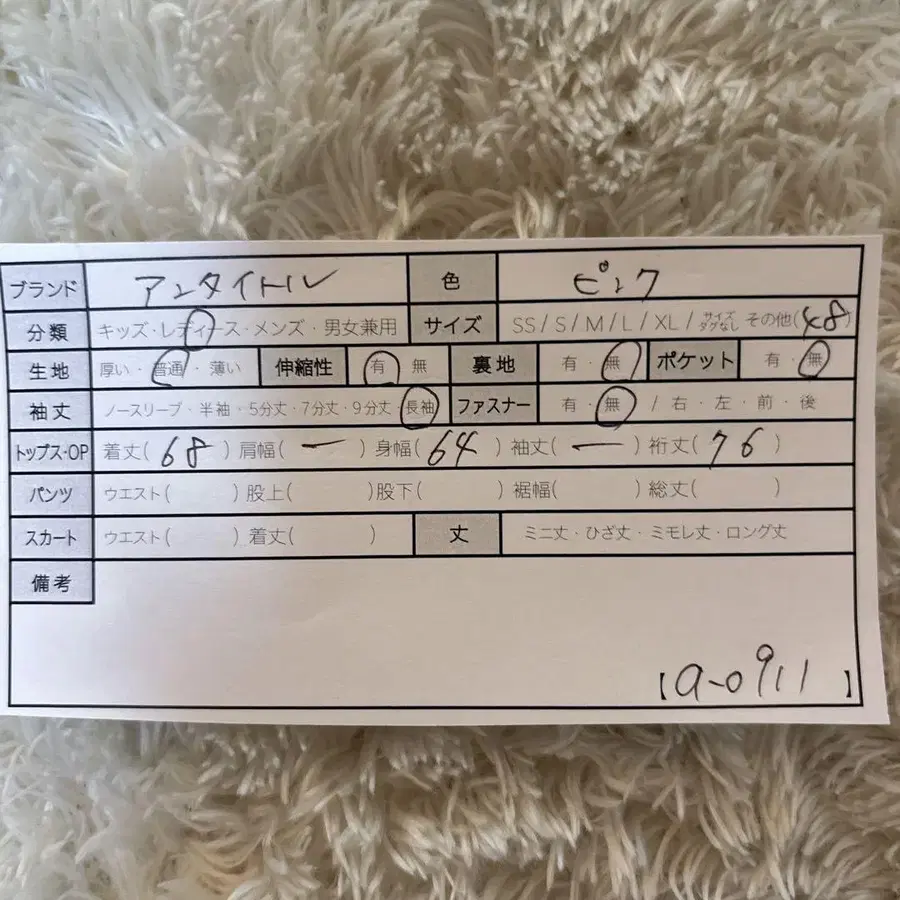 ブランド アンタイトル 色 ピンク
分類 キッズ・レディース・メンズ・男女兼用 サイズ SS/S/M/L/XL/サイズタグなし その他(48)
生地 厚い・普通・薄い 伸縮性 有 無 裏地 有・無 ポケット 有・無
袖丈 ノースリーブ・半袖・5分丈・7分丈・9分丈・長袖 ファスナー 有・無 / 右・左・前・後
トップス・OP 着丈(68) 肩幅(ー) 身幅(64) 袖丈(ー) 裄丈(76)
パンツ ウエスト( ) 股上( ) 股下( ) 裾幅( ) 総丈( )
スカート ウエスト( ) 着丈( ) 丈 ミニ丈・ひざ丈・ミモレ丈・ロング丈
備考
【a-0911】